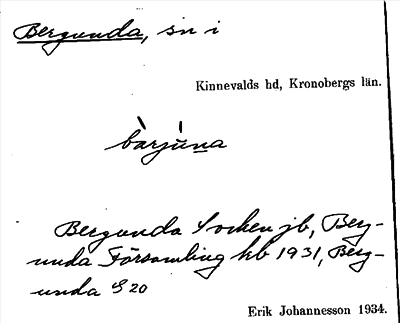 Bergunda, sn i
Kinnevalds hd, Kronobergs län.
bàrju̇na
Bergunda Socken jb, Berg-
unda Församling kb 1931, Berg-
unda S 20
Erik Johannesson 1934.